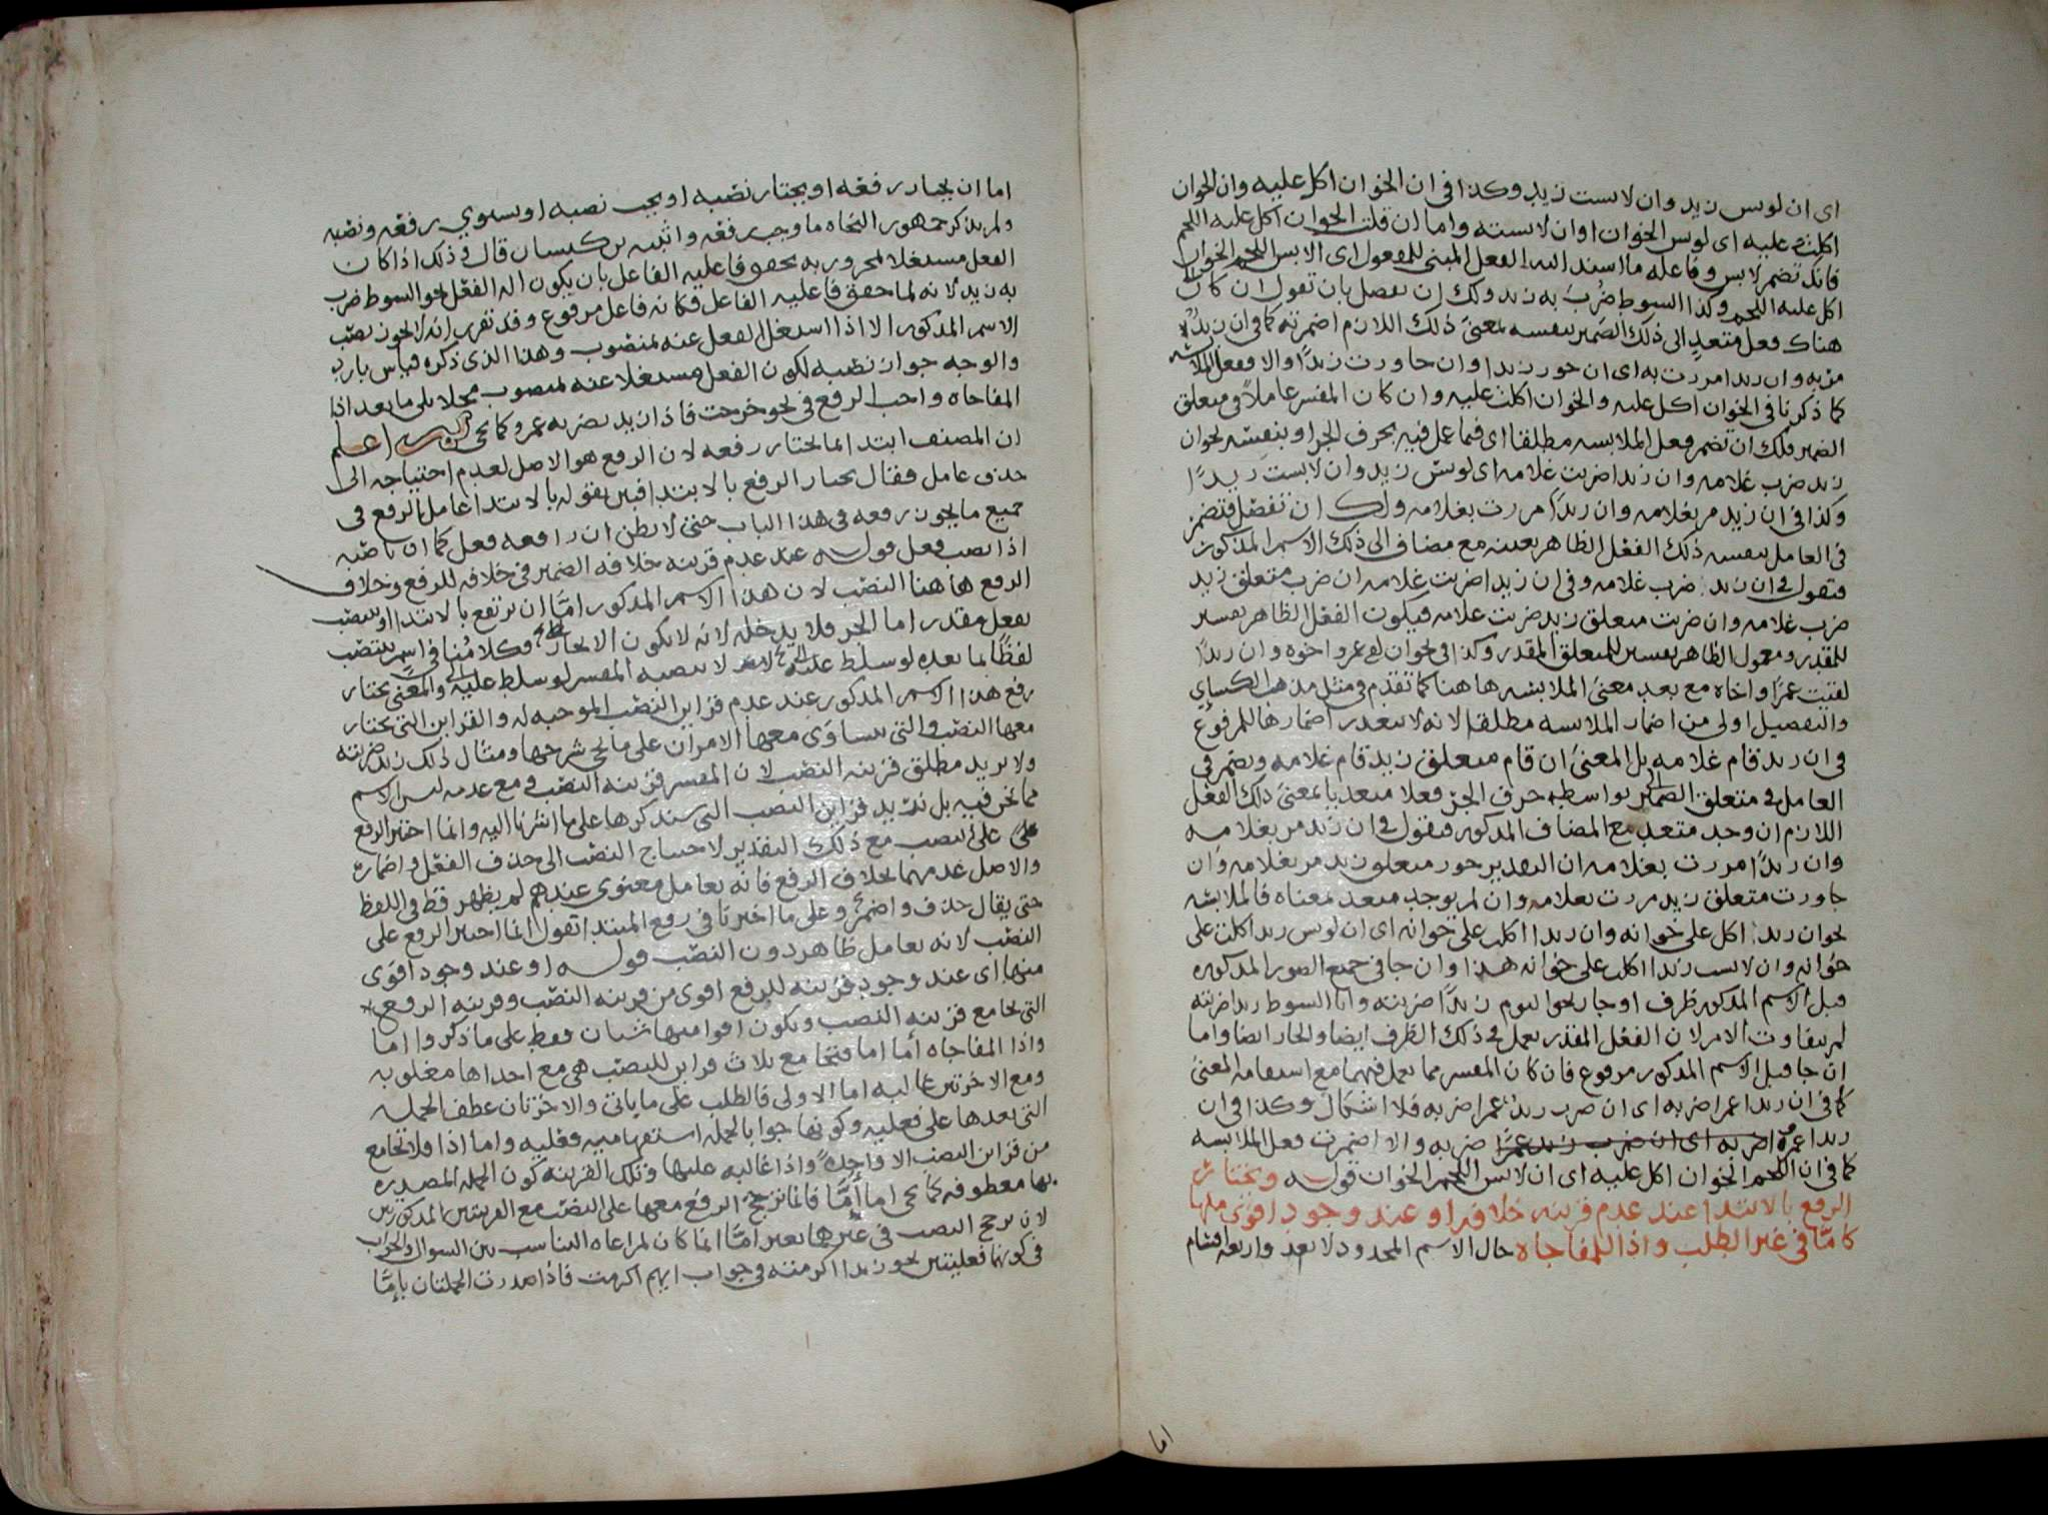 اى ان لوبس زيد وان لابست زيد وكذا فى ان الخوان اكل عليه وان الخوان
اكلت عليه اى لوبس الخوان اوان لابسته واما ان قلت الخوان اكل عليه اللحم
فانك تضمر لابس وفاعله ما اسند اليه الفعل المبنى للمفعول اى الابس اللحم الخوان
اكل عليه اللحم وكذا السوط ضرب به زيد ولك ان تفصل بان تقول ان كان
هناك فعل متعد الى ذلك الضمير بنفسه بمعنى ذلك اللازم اضمرته كما فى ان زيد
مر به وان زيدا مررت به اى ان جوز زيد وان جاوزت زيدا والا ففعل الملابسة
كما ذكرنا فى الخوان اكل عليه والخوان اكلت عليه وان كان المفسر عاملا فى متعلق
الضمير فلك ان تضمر فعل الملابسه مطلقا اى فيما عمل فيه بحرف الجر او بنفسه نحو ان
زيد ضرب غلامه وان زيدا ضربت غلامه اى لوبس زيد وان لابست زيدا
وكذا فى ان زيد مر بغلامه وان زيدا مررت بغلامه ولك ان تفصل فتضمر
فى العامل بنفسه ذلك الفعل الظاهر بعينه مع مضاف الى ذلك الاسم المذكور
فتقول فى ان زيد ضرب غلامه وفى ان زيدا ضربت غلامه ان ضرب متعلق زيد
ضرب غلامه وان ضربت متعلق زيد ضربت غلامه فيكون الفعل الظاهر تفسير
للمقدر ومعمول الظاهر تفسير للمتعلق المقدر وكذا فى نحو ان لقى عمرو اخوه وان زيدا
لقيت عمرا واخاه مع بعد معنى الملابسه هاهنا كما تقدم فى مثله مذهب الكسائى
والتفصيل اولى من اضمار الملابسه مطلقا لانه لا يتعذر اضمارها للمرفوع
فى ان زيد قام غلامه بل المعنى ان قام متعلق زيد قام غلامه وتضمر فى
العامل فى متعلق الضمير بواسطة حرف الجر فعلا متعديا بمعنى ذلك الفعل
اللازم ان وجد متعد مع المضاف المذكور فتقول فى ان زيد مر بغلامه
وان زيدا مررت بغلامه ان التقدير جوز متعلق زيد مر بغلامه وان
جاوزت متعلق زيد مررت بغلامه وان لم يوجد متعد بمعناه فالملابسه
نحو ان زيد اكل على خوانه وان زيدا اكلت على خوانه اى ان لوبس زيد اكلت على
خوانه وان لابست زيدا اكلت على خوانه هذا وان جا فى جميع الصور المذكوره
قبل الاسم المذكور ظرف او جار نحو اليوم زيدا ضربته واما السوط زيدا ضربته
لم يتفاوت الامر لان الفعل المقدر يعمل فى ذلك الظرف ايضا والجار ايضا واما
ان جا قبل الاسم المذكور مرفوع فان كان المفسر مما يعمل فيهما مع استقامه المعنى
كما فى ان زيدا عمرا ضربه اى ان ضرب زيد عمرا ضربه فلا اشكال وكذا فى ان
زيدا عمرو ضربه اى ان ضرب زيد عمرا ضربه والا اضمرت فعل الملابسه
كما فى ان اللحم الخوان اكل عليه اى ان لابس اللحم الخوان قوله ويختار
الرفع بالابتدا عند عدم قرينه خلافه او عند وجود اقوى منها
كاما فى غير الطلب واذا للمفاجاه حال الاسم المحدود لا يعد واربعه اقسام
اما
اما ان يختار رفعه او يختار نصبه او يجب نصبه او يستوى رفعه ونصبه
ولم يذكر جمهور النحاه ما وجب رفعه واثبته بن كيسان قال فى ذلك اذا كان
الفعل مستغلا لمجرور به تحقق فاعليه الفاعل بان يكون اله الفعل نحو السوط ضرب
به زيد لانه لما حقق فاعليه الفاعل فكانه فاعل مرفوع وقد تقرر انه لا يجوز نصب
الاسم المذكور الا اذا اشتغل الفعل عنه بمنصوب وهذا الذى ذكره قياس بارد
والوجه جواز نصبه لكون الفعل مستغلا عنه بمنصوب محلا بلى ما بعد اذا
المفاجاه واجب الرفع فى نحو خرجت فاذا زيد يضربه عمرو كما يجى اعلم
ان المصنف ابتدا بما يختار رفعه لان الرفع هو الاصل لعدم احتياجه الى
حذف عامل فقال يختار الرفع بالابتدا فبين بقوله بالابتدا عامل الرفع فى
جميع ما يجوز رفعه فى هذا الباب حتى لا يظن ان رافعه فعل كما ان ناصبه
اذا نصب فعل قوله عند عدم قرينه خلافه الضمير فى خلافه للرفع وخلاف
الرفع هاهنا النصب لان هذا الاسم المذكور اما ان يرتفع بالابتدا او ينتصب
بفعل مقدر اما الجر فلا يدخله لانه لا يكون الا بجار وكلامنا فى اسم ينتصب
لفظا بما بعده لو سلط عليه لا ينصبه المفسر لو سلط عليه والمعنى يختار
رفع هذا الاسم المذكور عند عدم قراين النصب الموجبه له والقراين التى يختار
معها النصب والتى يتساوى معها الامران على ما يجى شرحها ومثال ذلك زيد ضربته
ولا يريد مطلق قرينه النصب لان المفسر قرينه النصب فمع عدمه ليس الاسم
مما نحن فيه بل يريد قراين النصب التى سنذكرها على ما اشرنا اليه وانما اختير الرفع
على النصب مع ذلك التقدير لاحتياج النصب الى حذف الفعل واضماره
والاصل عدمهما بخلاف الرفع فانه بعامل معنوى عندهم لم يظهر قط فى اللفظ
حتى يقال حذف واضمر وعلى ما اخترنا فى رفع المبتدا تقول انما اختير الرفع على
النصب لانه بعامل ظاهر دون النصب قوله او عند وجود اقوى
منها اى عند وجود قرينه للرفع اقوى من قرينه النصب وقرينه الرفع
التى تجامع قرينه النصب وتكون اقوا منها شيان فقط على ما ذكروا اما
واذا المفاجاه اما اما فتجامع ثلاث قراين للنصب هى مع احداها مغلوبه
ومع الاخرتين غالبه اما الاولى فالطلب على ما ياتى والاخرتان عطف الجمله
التى بعدها على فعليه وكونها جوابا لجمله استفهاميه فعليه واما اذا فلا تجامع
من قراين النصب الا واحدة واذا غالبه عليها وتلك القرينه كون الجمله المصدره
بها معطوفه كما يجى اما اما فانما ترجح الرفع معها على النصب مع القرينتين المذكورتين
لان ترجح النصب فى غيرها بغير اما انما كان لمراعاه التناسب بين السوال والجواب
فى كونهما فعليتين نحو زيدا اكرمته فى جواب ايهم اكرمت فاذا صدرت الجملتان باما